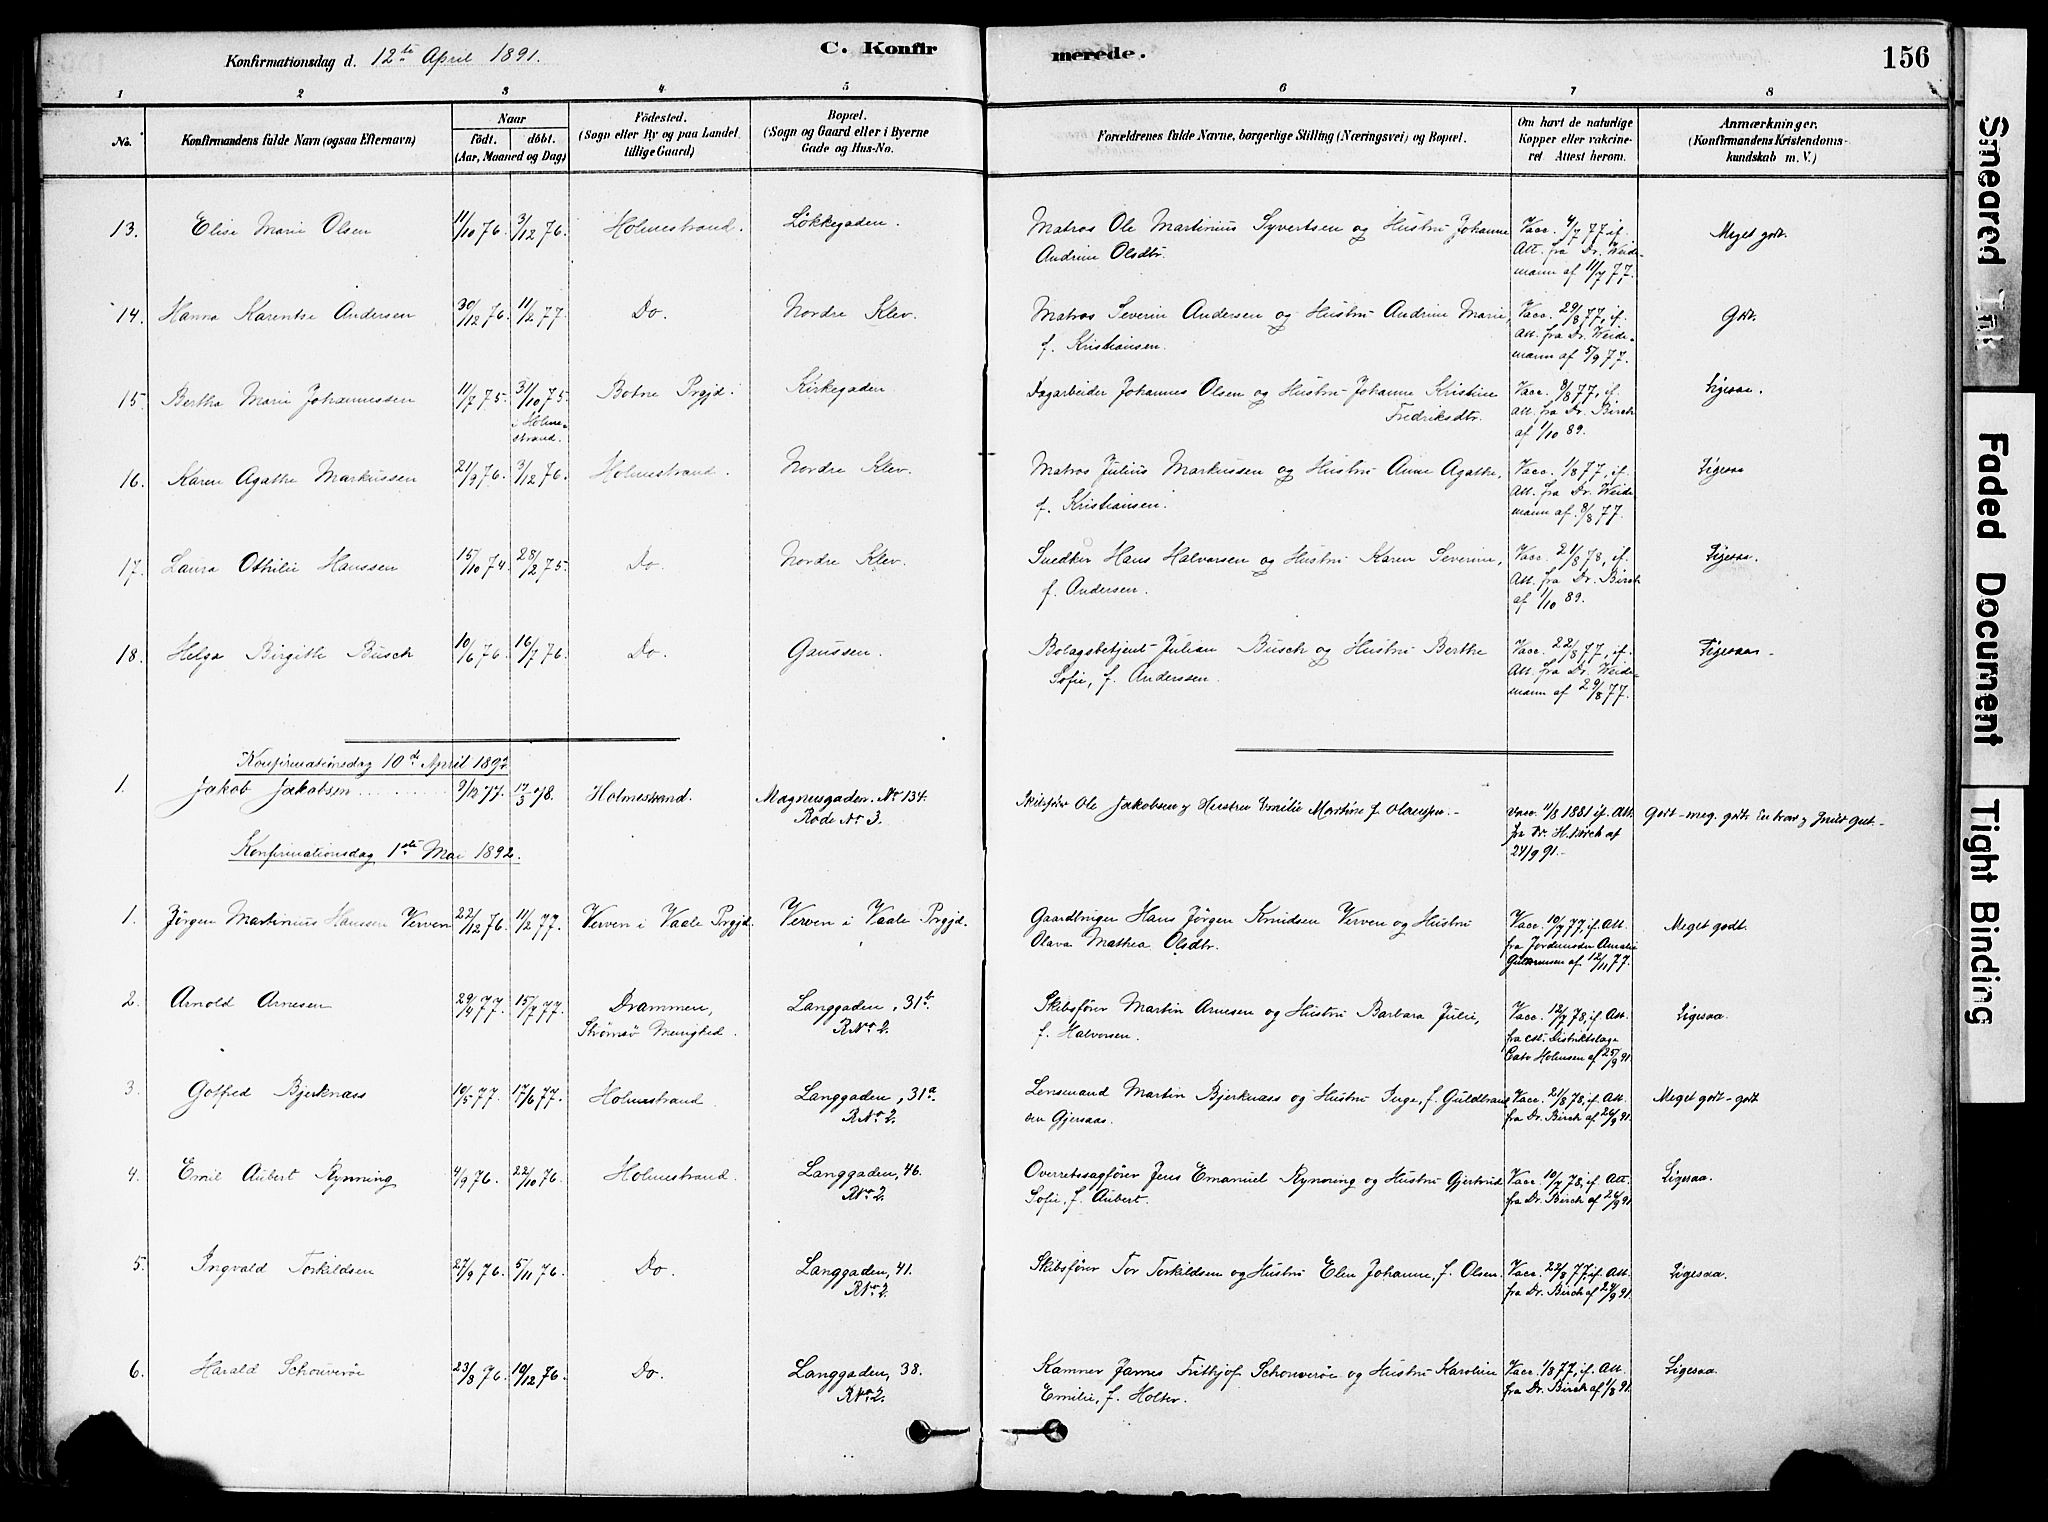 Konfirmationsdag d. 12te April 1891.
C. Konfirmerede.
156
1 2 3 4 5 6 7 8
No.
Konfirmandens fulde Navn (ogsaa Efternavn)
Naar
födt. döbt.
(Aar, Maaned og Dag)
Födested.
(Sogn eller By og paa Landet tillige Gaard)
Bopæl.
(Sogn og Gaard eller i Byerne
Gade og Hus-No.
Forældrenes fulde Navne, borgerlige Stilling (Næringsvei) og Bopæl.
Om havt de naturlige
Kopper eller vakcine-
ret Attest herom.
Anmærkninger.
(Konfirmandens Kristendoms-
kundskab m. V.)
13. Elise Marie Olsen 11/10 76. 3/12 76. Holmestrand. Løkkegaden. Matros Ole Martinius Syvertsen og Hustru Johanne Vacc. 4/7 77 if. Meget godt.
Andrine Olsdtr. Att. fra Dr. Weide-
mann af 11/7 77.
14. Hanna Karentse Andersen 30/12 76. 11/2 77. Do. Nordre Klev. Matros Severin Andersen og Hustru Andrine Marie, Vacc. 29/8 77, if. Godt.
f. Kristiansen. Att. fra Dr. Weide-
mann af 5/9 77.
15. Bertha Marie Johannessen 11/7 75. 31/10 75. Botne Prgjd. Kirkegaden. Dagarbeider Johannes Olsen og Hustru Johanne Kristine Vacc. 9/8 77, if. Ligesaa.
i Holme-
strand.
Fredriksdtr. Att. fra Dr. Birch
af 1/10 89.
16. Karen Agathe Markussen 21/9 76. 3/12 76. Holmestrand. Nordre Klev. Matros Julius Markussen og Hustru Anne Agathe, Vacc. 1/8 77, if. Ligesaa
f. Kristiansen. Att. fra Dr. Weide-
mann af 8/8 77.
17. Laura Othilie Hanssen 15/10 74. 28/2 75. Do. Nordre Klev. Snedker Hans Halvorsen og Hustru Karen Severine, Vacc. 21/8 78, if. Ligesaa.
f. Andersen. Att. fra Dr. Birch
af 1/10 89.
18. Helga Birgitte Busch 10/6 76. 16/7 76. Do. Gaussen. Bolagsbetjent Julian Busch og Hustru Berthe Vacc. 22/8 77, if. Ligesaa
Sofie, f. Anderssen. Att. fra Dr. Weide-
mann af 29/8 77.
Konfirmationsdag 10de April 1892
1. Jakob Jakobsen 9/12 77. 17/3 78. Holmestrand. Magnusgaden. No 134. Skibsfører Ole Jakobsen og Hustru Emilie Martine f. Vacc. 11/8 1881 if. Att. Godt - meg. godt.
Rode No 3. fra Dr. H. Birch af
24/9 91.
Konfirmationsdag 1ste Mai 1892.
1. Jørgen Martinius Hanssen Verven 22/12 76. 11/2 77. Verven i Vaale Prgjd. Verven i Vaale Prgjd. Gaardbruger Hans Jørgen Knudsen Verven og Hustru Vacc. 10/7 77, if. Att. Meget godt.
Olava Mathea Olsdtr. fra Jordemoder Amalie
af 12/11 77.
2. Arnold Arnesen 29/4 77. 15/7 77. Drammen, Langgaden, 31b. Skibsfører Martin Arnesen og Hustru Barbara Julie, Vacc. 12/7 78, if. Att. Ligesaa.
Strømsø Menighed. R No 2. f. Halvorsen. fra cst. Distriktslæge
Cato Holmsen af 25/9 91.
3. Gotfred Bjerknæss 10/5 77. 17/6 77. Holmestrand. Langgaden, 31a. Lensmand Martin Bjerknæss og Hustru Inge, f. Guldbrand Vacc. 21/8 78, if. Att. Meget godt - godt
R No 2. sen Gjersaas. fra Dr. Birch af 24/9 91.
4. Emil Aubert Rynning 4/9 76. 22/10 76. Holmestrand. Langgaden, 46. Overretssagfører Jens Emanuel Rynning og Hustru Gjertrud Vacc. 10/7 78, if. Att. Ligesaa.
R No 2. Sofie, f. Aubert. fra Dr. Birch af 24/9 91.
5. Ingvald Torkildsen 27/9 76. 5/11 76. Do. Langgaden, 41. Skibsfører Tor Torkildsen og Hustru Elen Johanne, f. Olsen. Vacc. 22/8 77, if. Att. Ligesaa.
R No 2. fra Dr. Birch af 24/9 91.
6. Harald Schouverøe 23/8 76. 19/12 76. Do. Langgaden, 38. Kamner James Frithjof Schouverøe og Hustru Karoline Vacc. 1/8 77, if. Att. Ligesaa.
R No 2. Emilie, f. Holter. fra Dr. Birch af 1/8 91.
Smeared Ink
Faded Document
Tight Binding